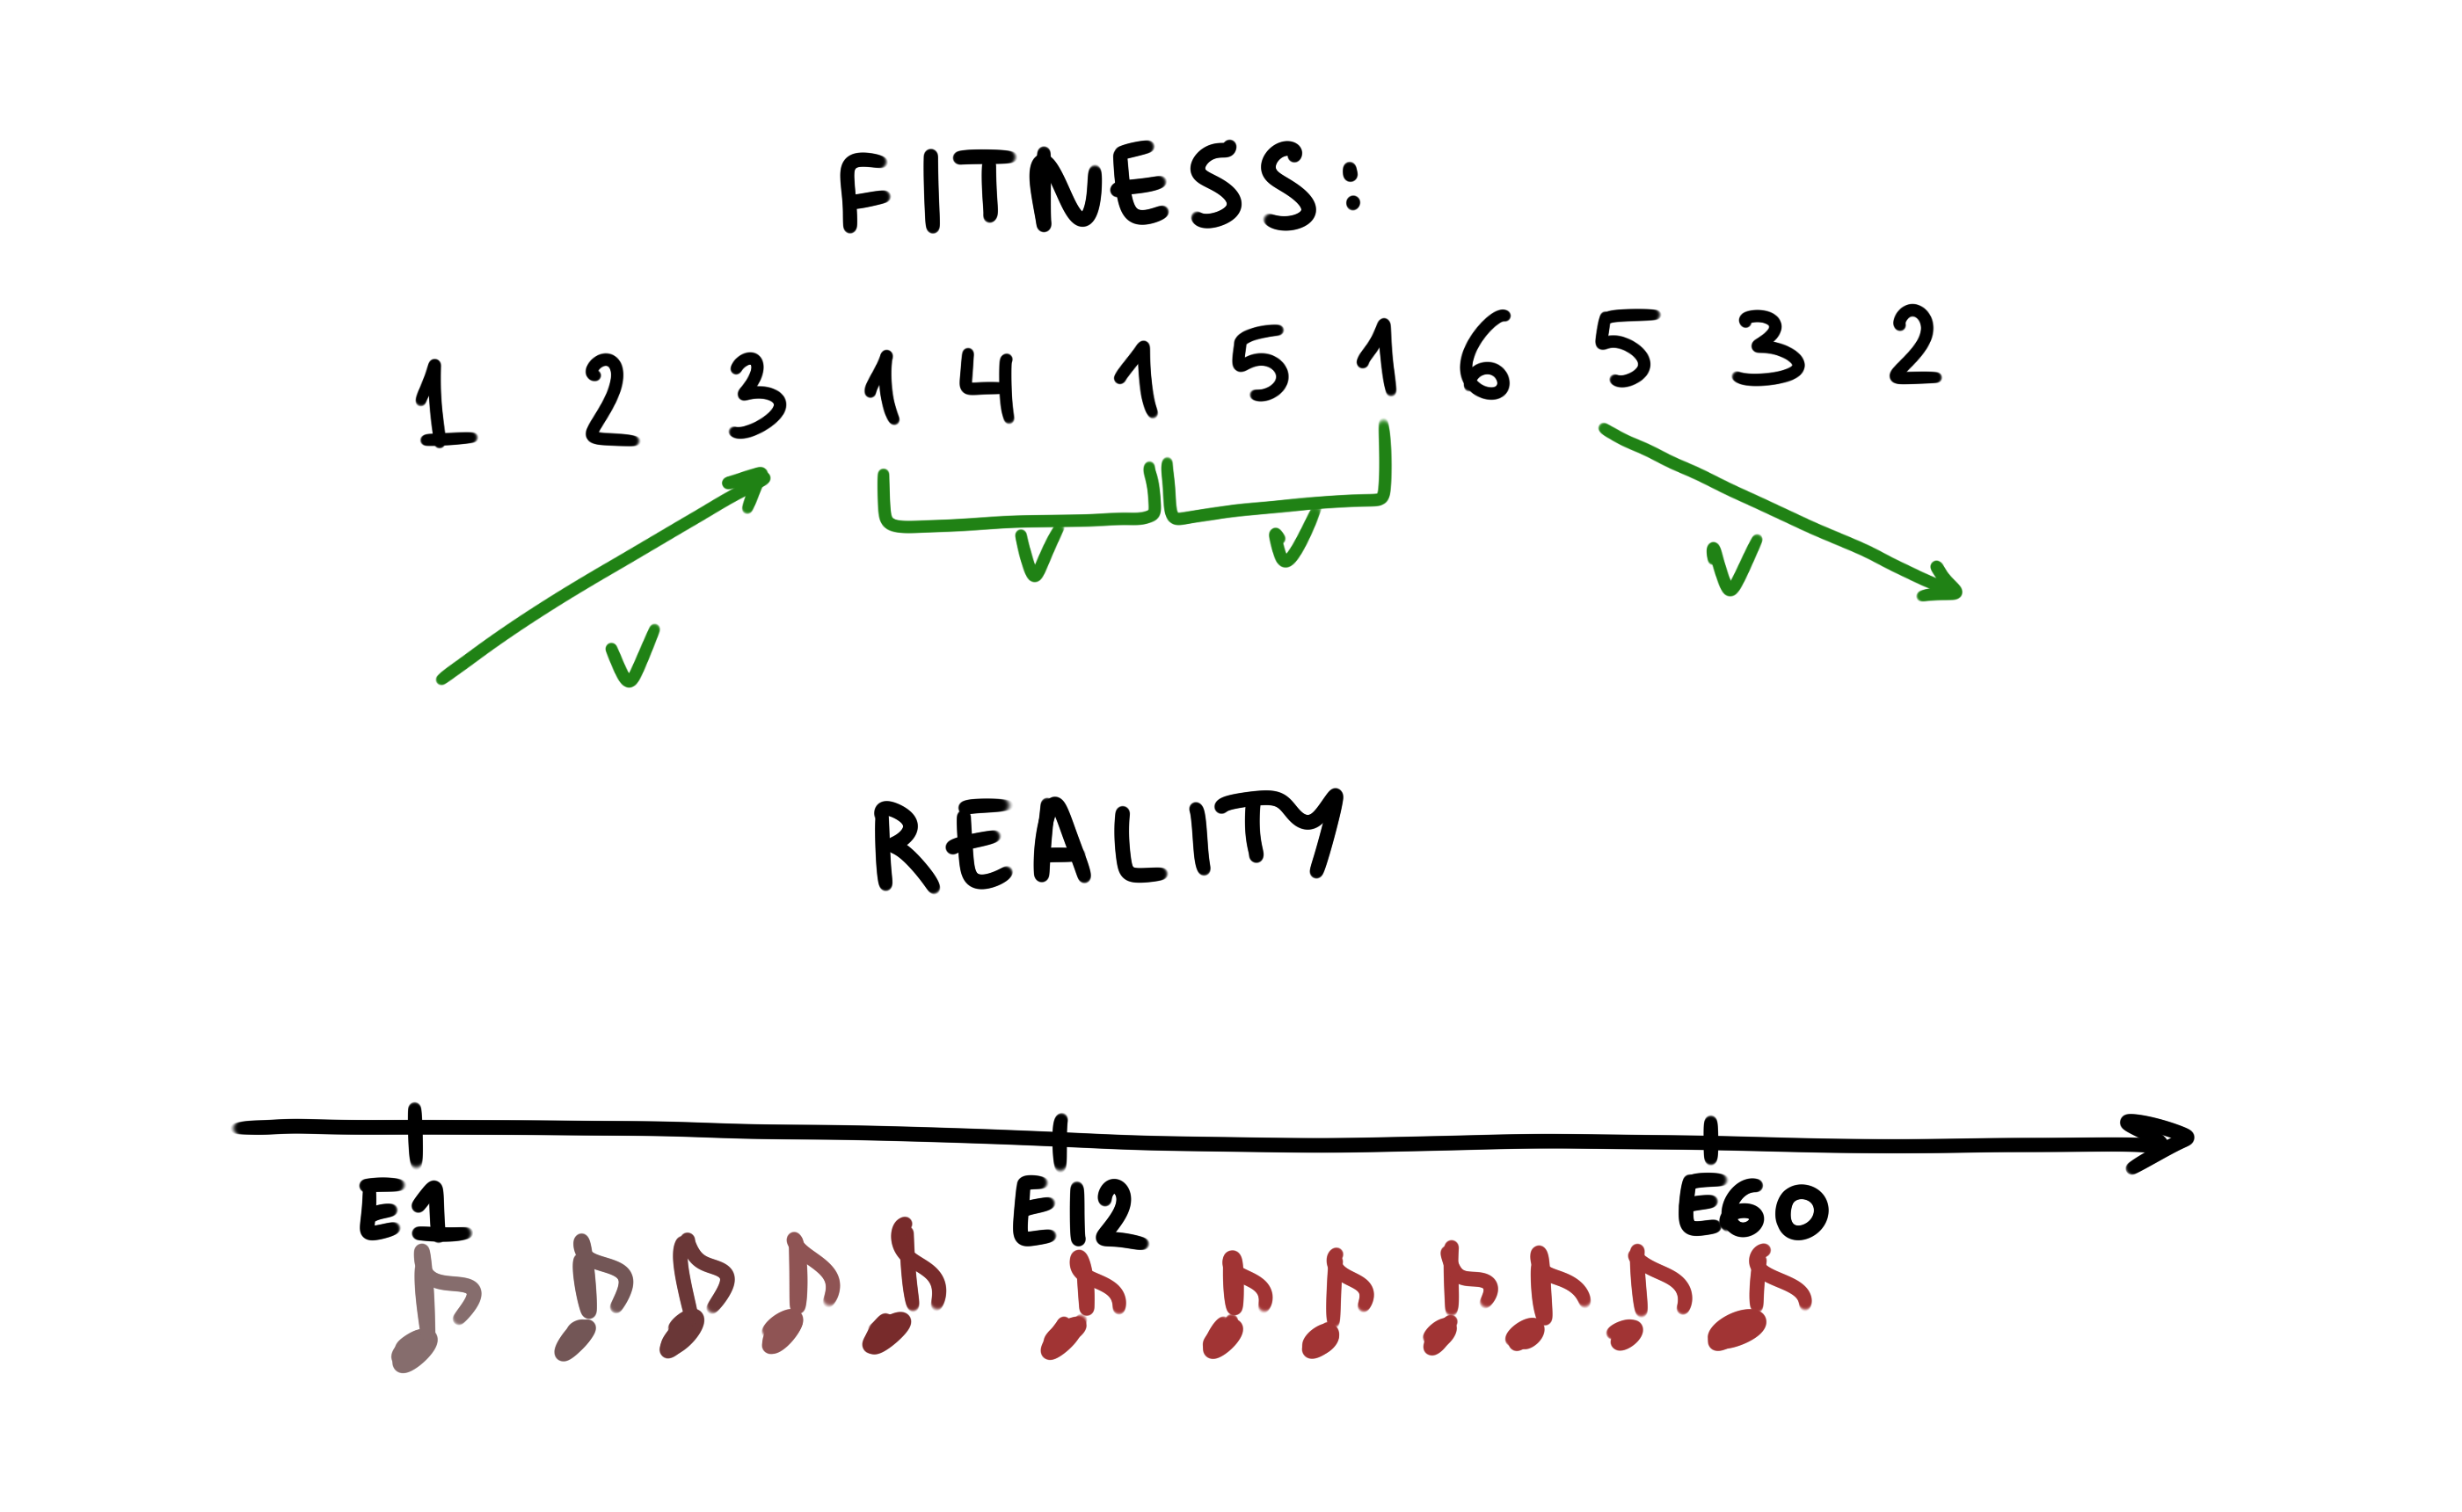 FITNESS:
1 2 3 1 4 1 5 1 6 5 3 2
REALITY
E1 E12 E60